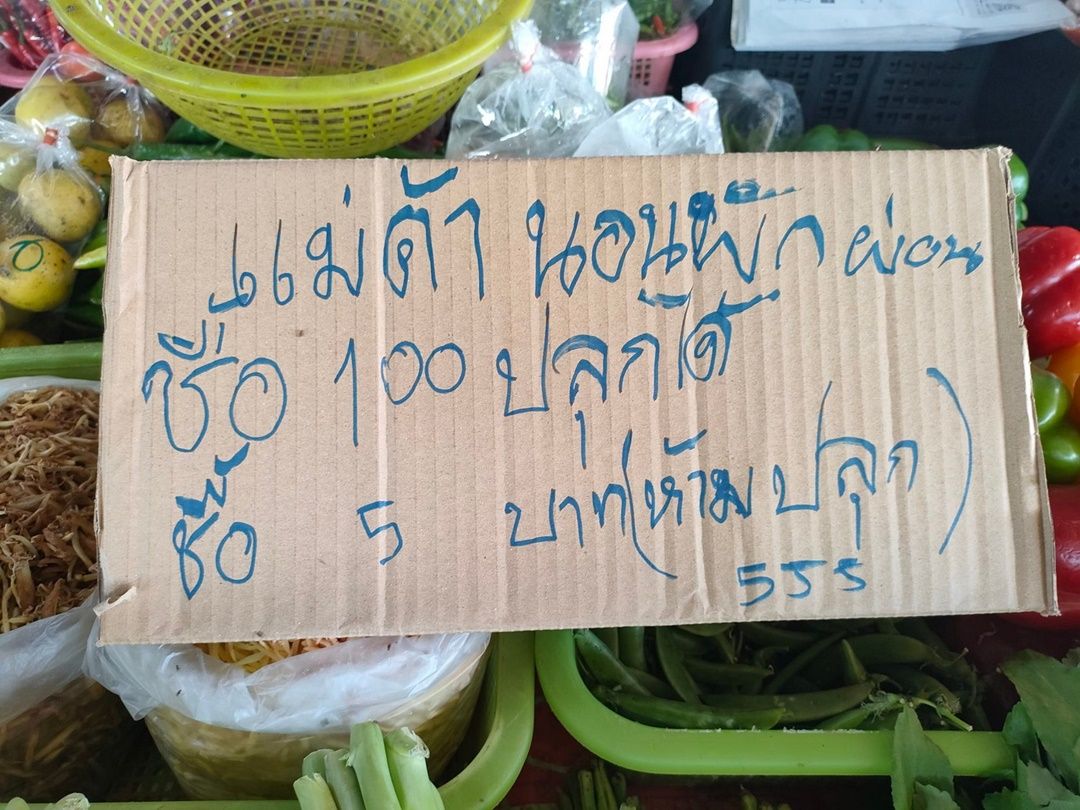 แม่ค้า นอนพักผ่อน
ซื้อ 100 ปลุกได้
ซื้อ 5 บาท (ห้ามปลุก)
555